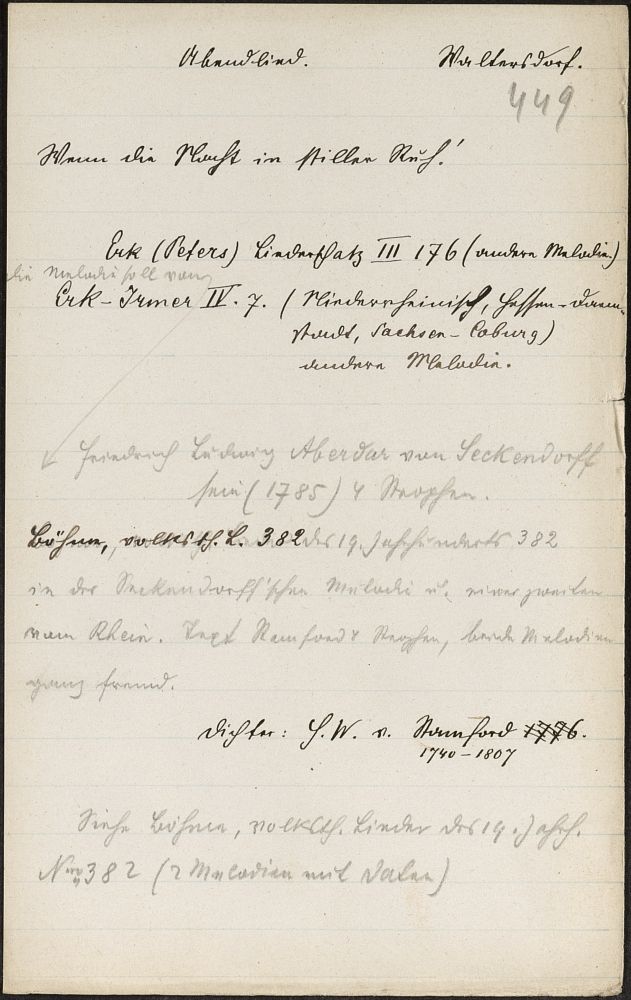 Abendlied. Waltersdorf.
449
Wenn die Nacht in stiller Ruh!
Erk (Peters) Liederschatz III 176 (andere Melodie.)
die Melodie soll von
Erk-Irmer IV. 7. (Niederrheinisch, Hessen-Darm-
stadt, Sachsen-Coburg)
andere Melodie.
Friedrich Ludwig von Seckendorff
sein (1785) 4 Strophen.
Böhme, volksth. L. 382 des 19. Jahrhunderts 382
in der Seckendorff'schen Melodie u. einer zweiten
vom Rhein. Text Stamford 8 Strophen, beide Melodien
ganz fremd.
Dichter: H. W. v. Stamford 1776.
1740-1807
Siehe Böhme, volksth. Lieder des 19. Jahrh.
382 (2 Melodien mit Daten)